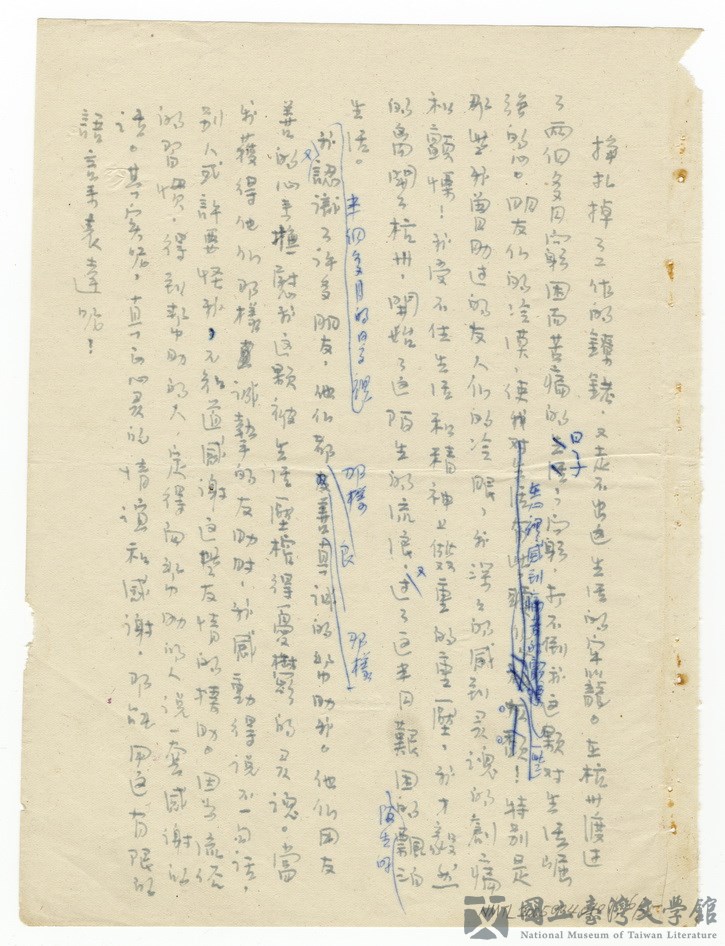 掙扎掉了工作的鐐銬，又走不出這生活的牢籠。在杭州渡過
了兩個多月窮困而苦痛的日子，窮，打不倒我這顆對生活崛
強的心。朋友們的冷漠，使我
怎裡感到
特別是
那些我曾助过的友人們的冷眼，我深深的感到灵魂的創痛
和顫慄！我受不住生活和精神上做重的重壓，我才毅然
的离開了杭州，開始了这陌生的流浪，过了这半月艱困的飄泊
生活。半個多月的日子裡
我認識了許多朋友，他們都善良真誠的幫助我。他們用友
那樣
那樣
善的心來撫慰我这顆被生活壓榨得憂鬱的灵魂。當
我獲得他們那樣真誠摯的友助時，我感動得说不一句话，
別人或許要怪我，不知道感谢这些友情的援助。因为流俗
的習慣，得到幫助的人，定得向幫助的人说一套感谢的
话。其实呢，真正心灵的情誼和感谢，那能用这有限的
語言來表達呢！
國立臺灣文學館
National Museum of Taiwan Literature